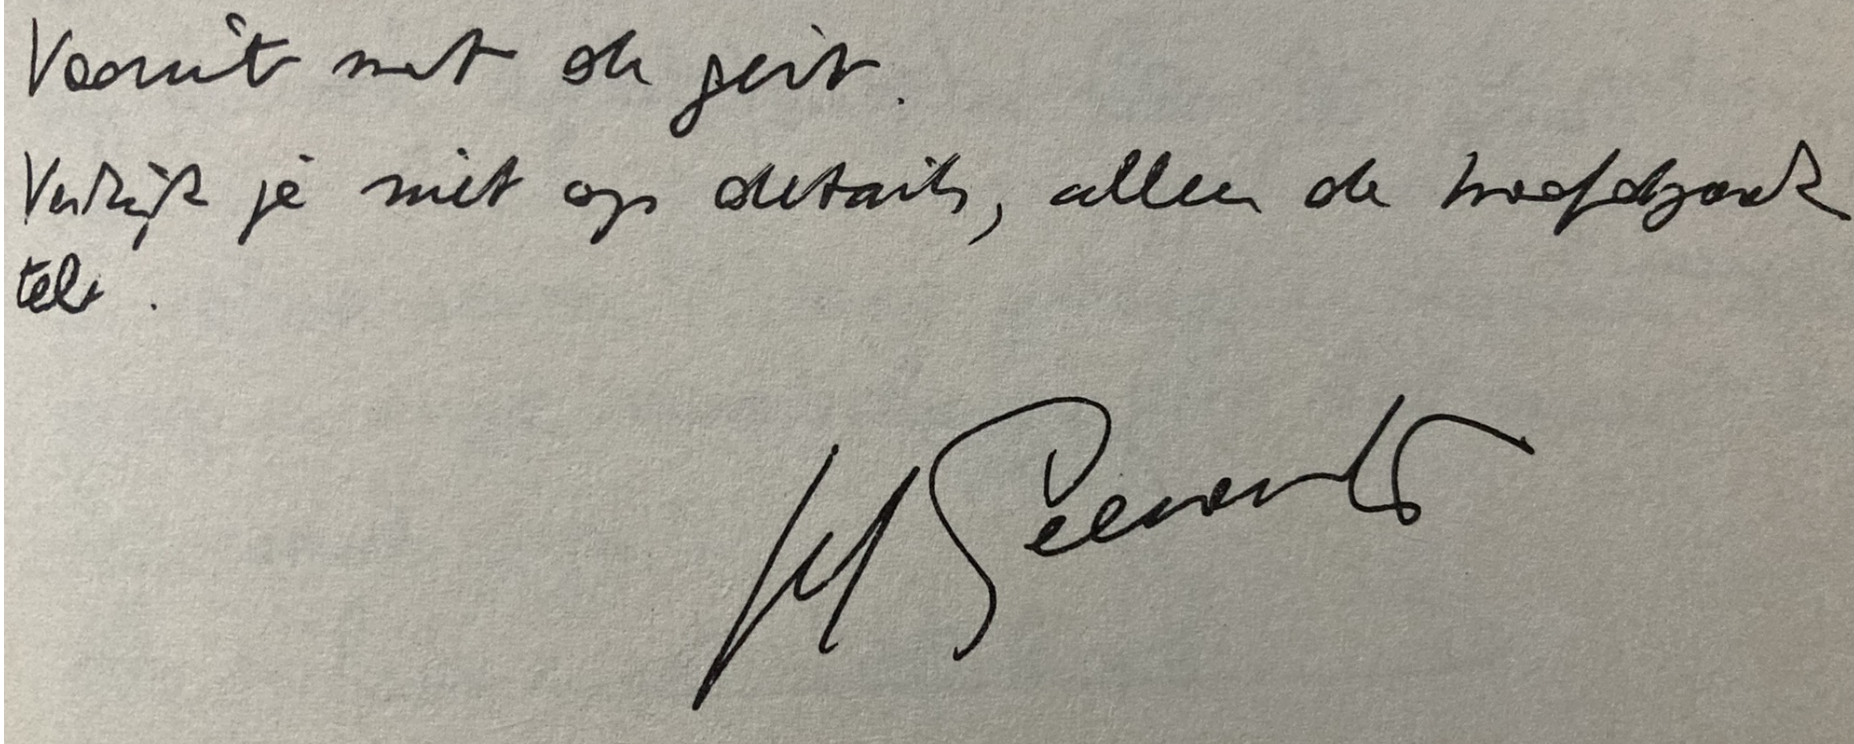 Vooruit met de geit.
Verkijk je niet op details, alleen de hoofdzaak
telt.